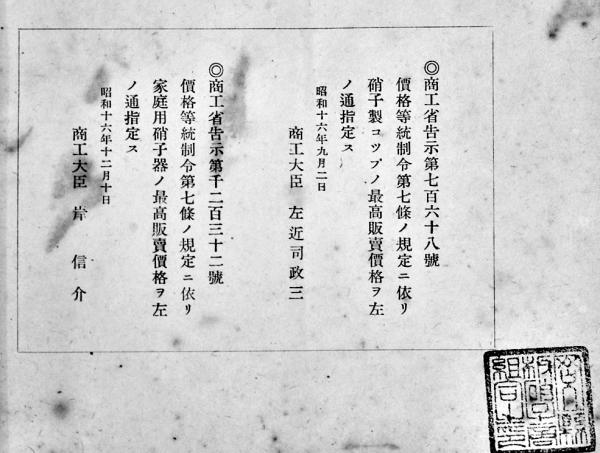 ◎商工省告示第七百六十八號
價格等統制令第七條ノ規定ニ依リ
硝子製コツプノ最高販賣價格ヲ左
ノ通指定ス
昭和十六年九月二日
商工大臣 左近司政三
◎商工省告示第千二百三十二號
價格等統制令第七條ノ規定ニ依リ
家庭用硝子器ノ最高販賣價格ヲ左
ノ通指定ス
昭和十六年十二月十日
商工大臣 岸信介